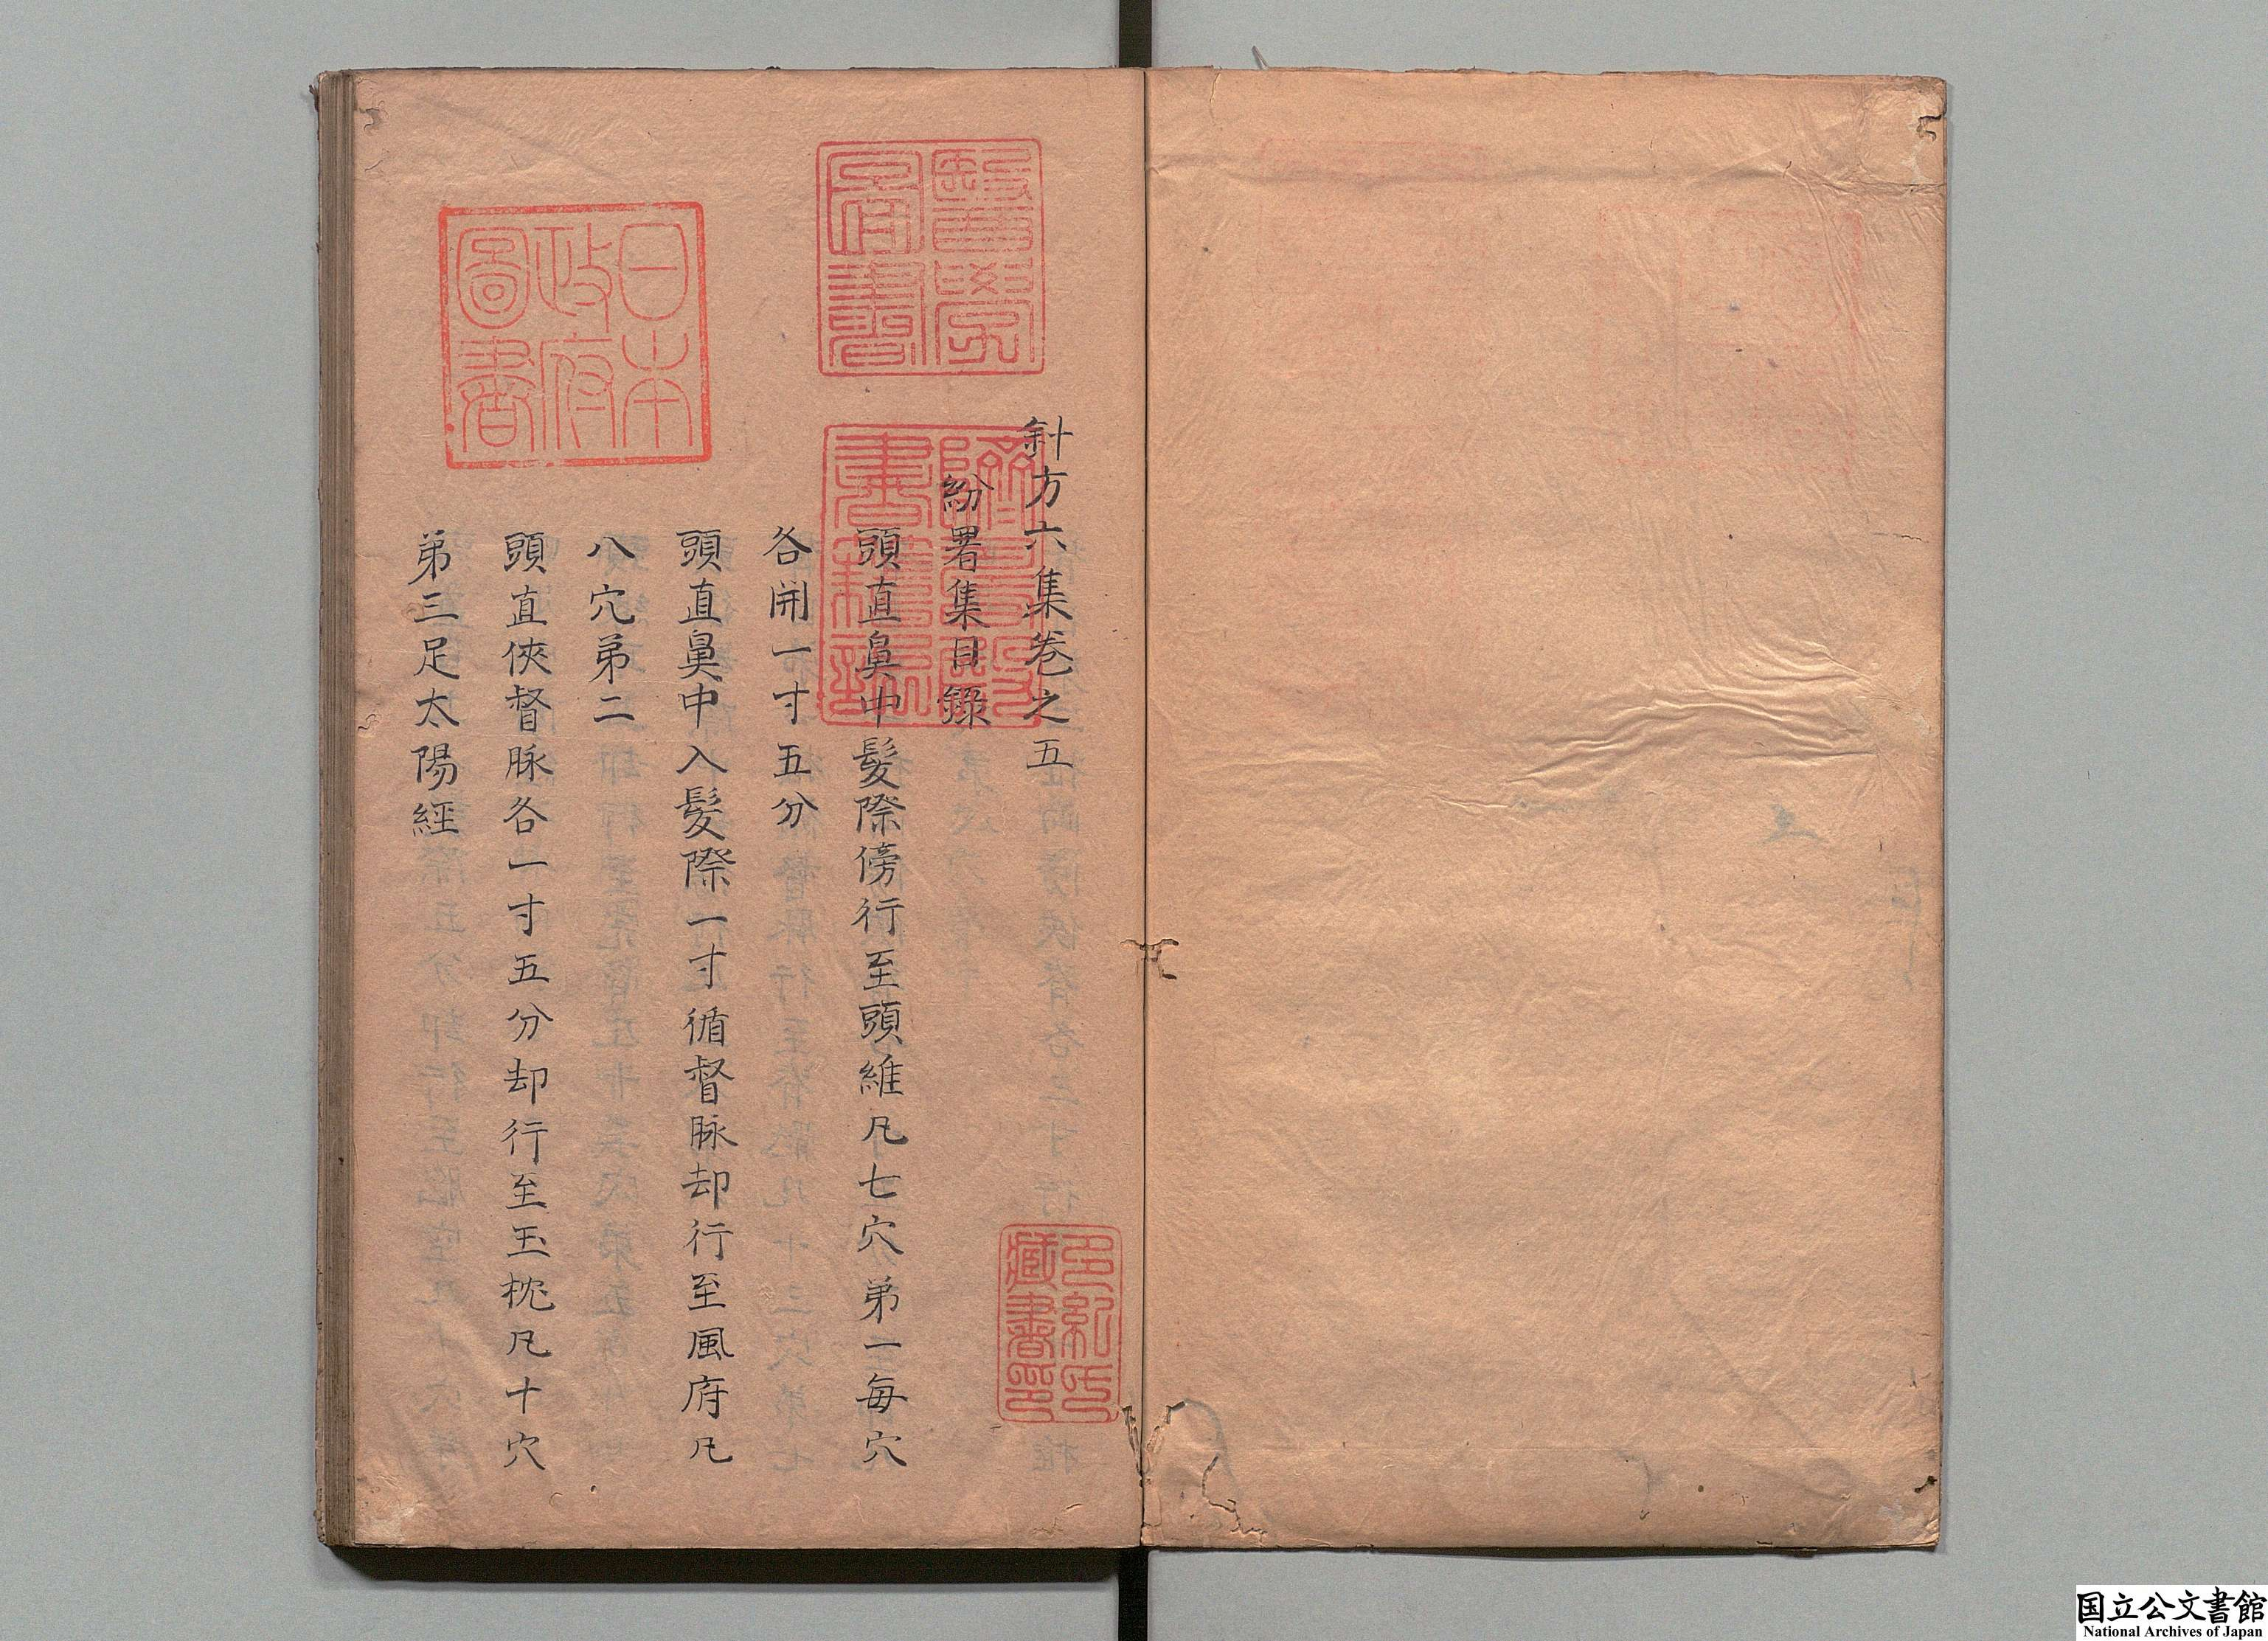 針方六集卷之五
紛署集目錄
頭直鼻中髮際傍行至頭維凡七穴第一每穴
各開一寸五分
頭直鼻中入髮際一寸循督脉却行至風府凡
八穴第二
頭直俠督脉各一寸五分却行至玉枕凡十穴
第三足太陽經
醫學圖書
躋壽殿書籍記
多紀氏藏書印
日本政府圖書
国立公文書館
National Archives of Japan